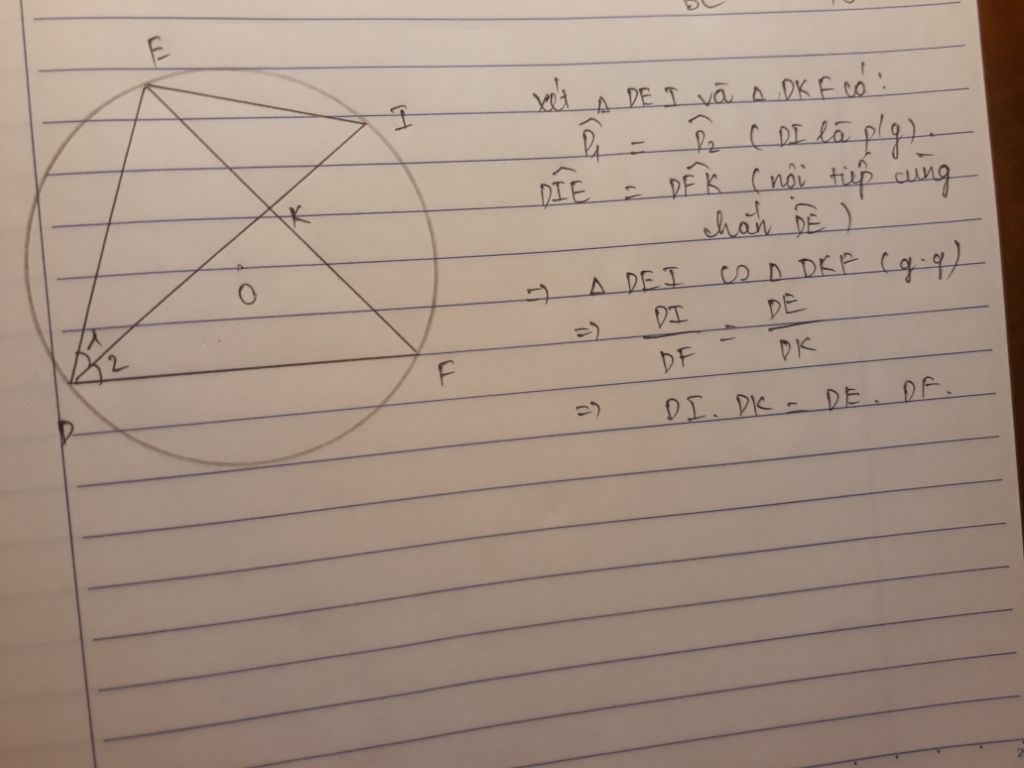 BC
E
I
K
O
1
2
F
D
Xét △ DEI và △ DKF có:
D̂₁ = D̂₂ ( DI là p/g ).
DÎE = DF̂K ( nội tiếp cùng
chắn D͡E )
=> △ DEI ∽ △ DKF ( g.g )
=> DI/DF = DE/DK
=> DI. DK = DE. DF.